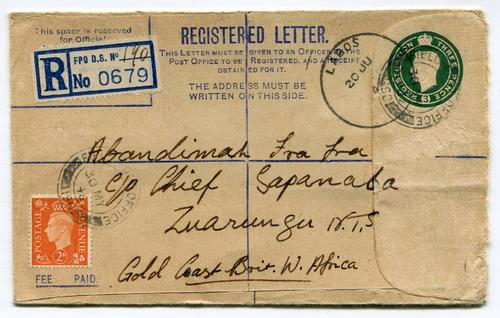 This space is reserved
for Official
REGISTERED LETTER.
THIS LETTER MUST BE GIVEN TO AN OFFICER OF THE
POST OFFICE TO BE REGISTERED, AND A RECEIPT
OBTAINED FOR IT.
THE ADDRESS MUST BE
WRITTEN ON THIS SIDE.
R
FPO D.S. No 190
No 0679
LAGOS
20 JU
THREE PENCE
3
OFFICE
Abandimah Fra Fra
c/o Chief Sapanaba
Zuarungu N.T.S
Gold Coast Brit. W. Africa
30 MY
OFFICE
POSTAGE
REVENUE
2D
FEE PAID